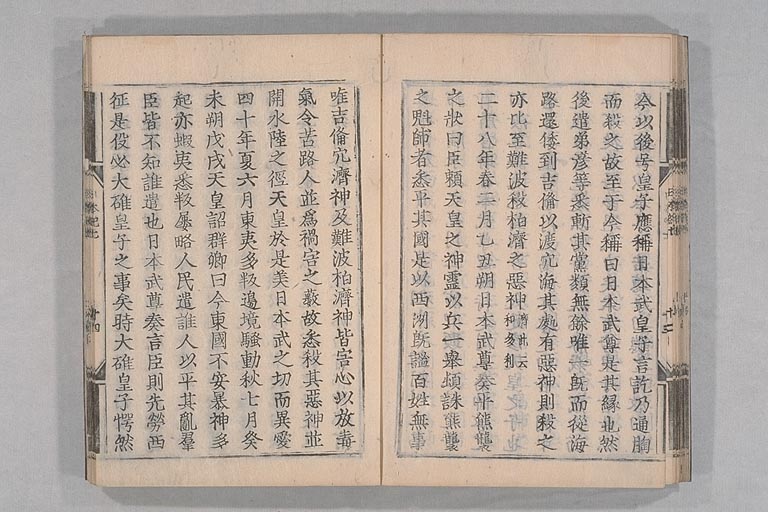 今以後号皇子應稱日本武皇子言訖乃通胸
而殺之故至于今稱曰日本武尊是其縁也然
後遣弟彦等悉斬其黨類無餘唯既而從海
路還倭到吉備以渡穴海其處有惡神則殺之
亦比至難波殺柏濟之惡神濟此云和多利
二十八年春二月乙丑朔日本武尊奏平熊襲
之狀曰臣頼天皇之神靈以兵一舉頓誅熊襲
之魁師者悉平其國是以西洲既謐百姓無事
唯吉備穴濟神及難波柏濟神皆害心以放毒
氣令苦路人並爲禍害之藪故悉殺其惡神並
開水陸之徑天皇於是美日本武之功而異愛
四十年夏六月東夷多叛邊境騒動秋七月癸
未朔戊戌天皇詔群卿曰今東國不安暴神多
起亦蝦夷悉叛屡略人民遣誰人以平其亂羣
臣皆不知誰遣也日本武尊奏言臣則先勞西
征是役必大碓皇子之事矣時大碓皇子愕然